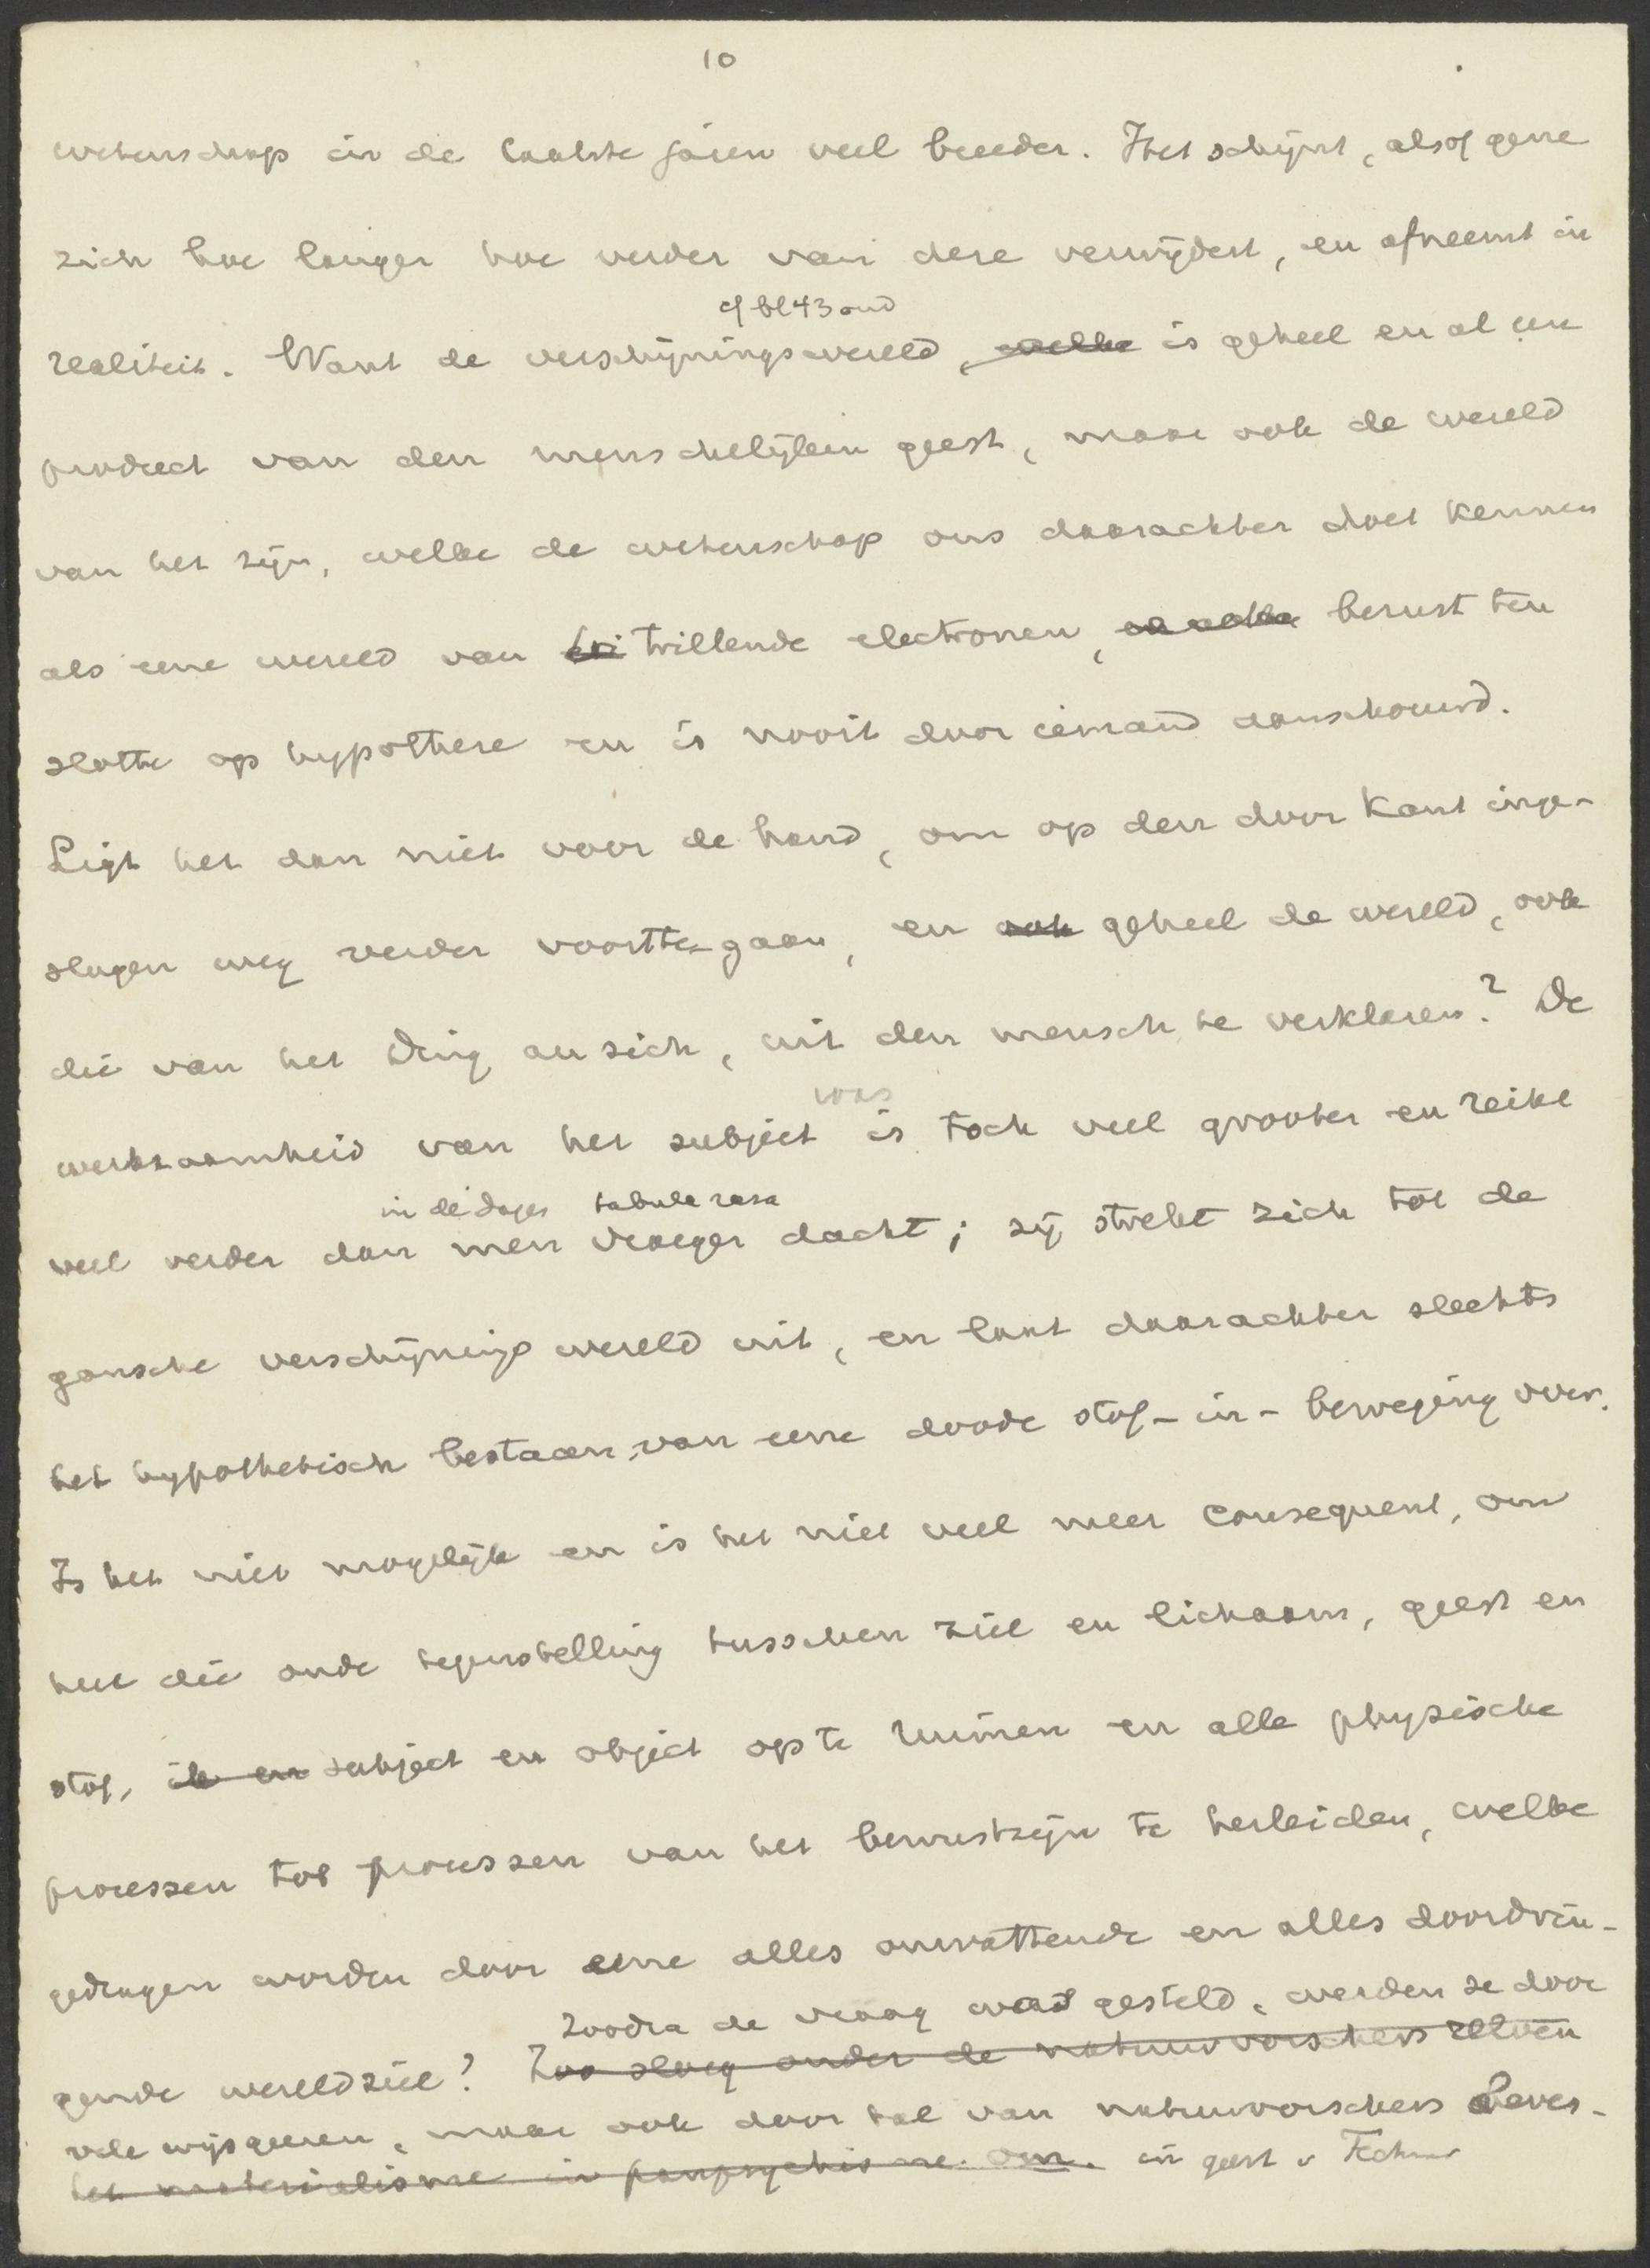 10
wetenschap in de laatste jaren veel breeder. Het schijnt, alsof gene
zich hoe langer hoe verder van deze verwijdert, en afneemt in
cf bl 43 ond
realiteit. Want de verschijningswereld, welke is geheel en al een
product van den menschelijken geest, maar ook de wereld
van het zijn, welke de wetenschap ons daarachter doet kennen
als eene wereld van tri trillende electronen, berust ten
slotte op hypothese en is nooit door iemand aanschouwd.
Ligt het dan niet voor de hand, om op den door Kant inge-
slagen weg verder voort te gaan, en ook geheel de wereld, ook
die van het Ding an sich, uit den mensch te verklaren? De
was
werkzaamheid van het subject is toch veel grooter en reikt
in de dagen tabula rasa
veel verder dan men vroeger dacht; zij strekt zich tot de
gansche verschijningswereld uit, en laat daarachter slechts
het hypothetisch bestaan van eene doode stof-in-beweging over.
Is het niet mogelijk en is het niet veel meer consequent, om
heel die oude tegenstelling tusschen ziel en lichaam, geest en
stof, ik en subject en object op te ruimen en alle physische
processen tot processen van het bewustzijn te herleiden, welke
gedragen worden door eene alles omvattende en alles doordrin-
Zoodra de vraag was gesteld, werden ze door
gende wereldziel? Zoo sloeg onder de natuurvorschers zelven
vele wijsgeeren, maar ook door tal van natuurvorschers beves-
het materialisme in panpsychisme om. in geest v Fechner